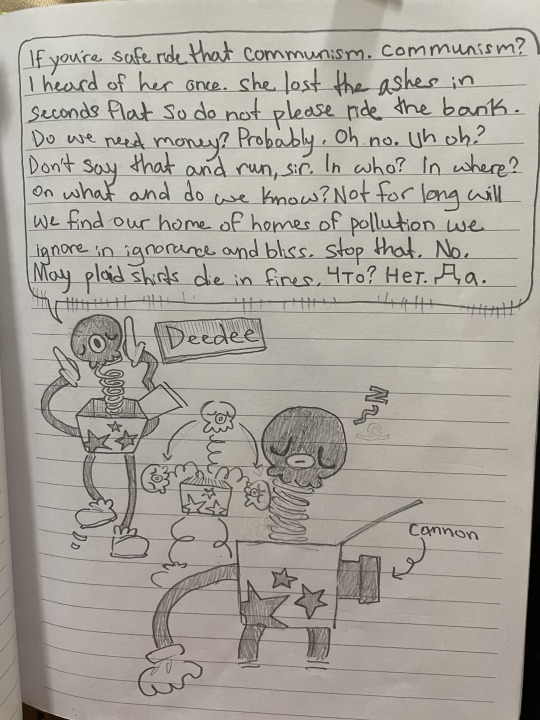 If you're safe ride that communism. communism?
I heard of her once. she lost the ashes in
seconds flat so do not please ride the bank.
Do we need money? Probably. Oh no. Uh oh?
Don't say that and run, sir. In who? In where?
on what and do we know? Not for long will
we find our home of homes of pollution we
ignore in ignorance and bliss. stop that. No.
May plaid shirts die in fires. Что? Нет. Да.
Deedee
N
Cannon